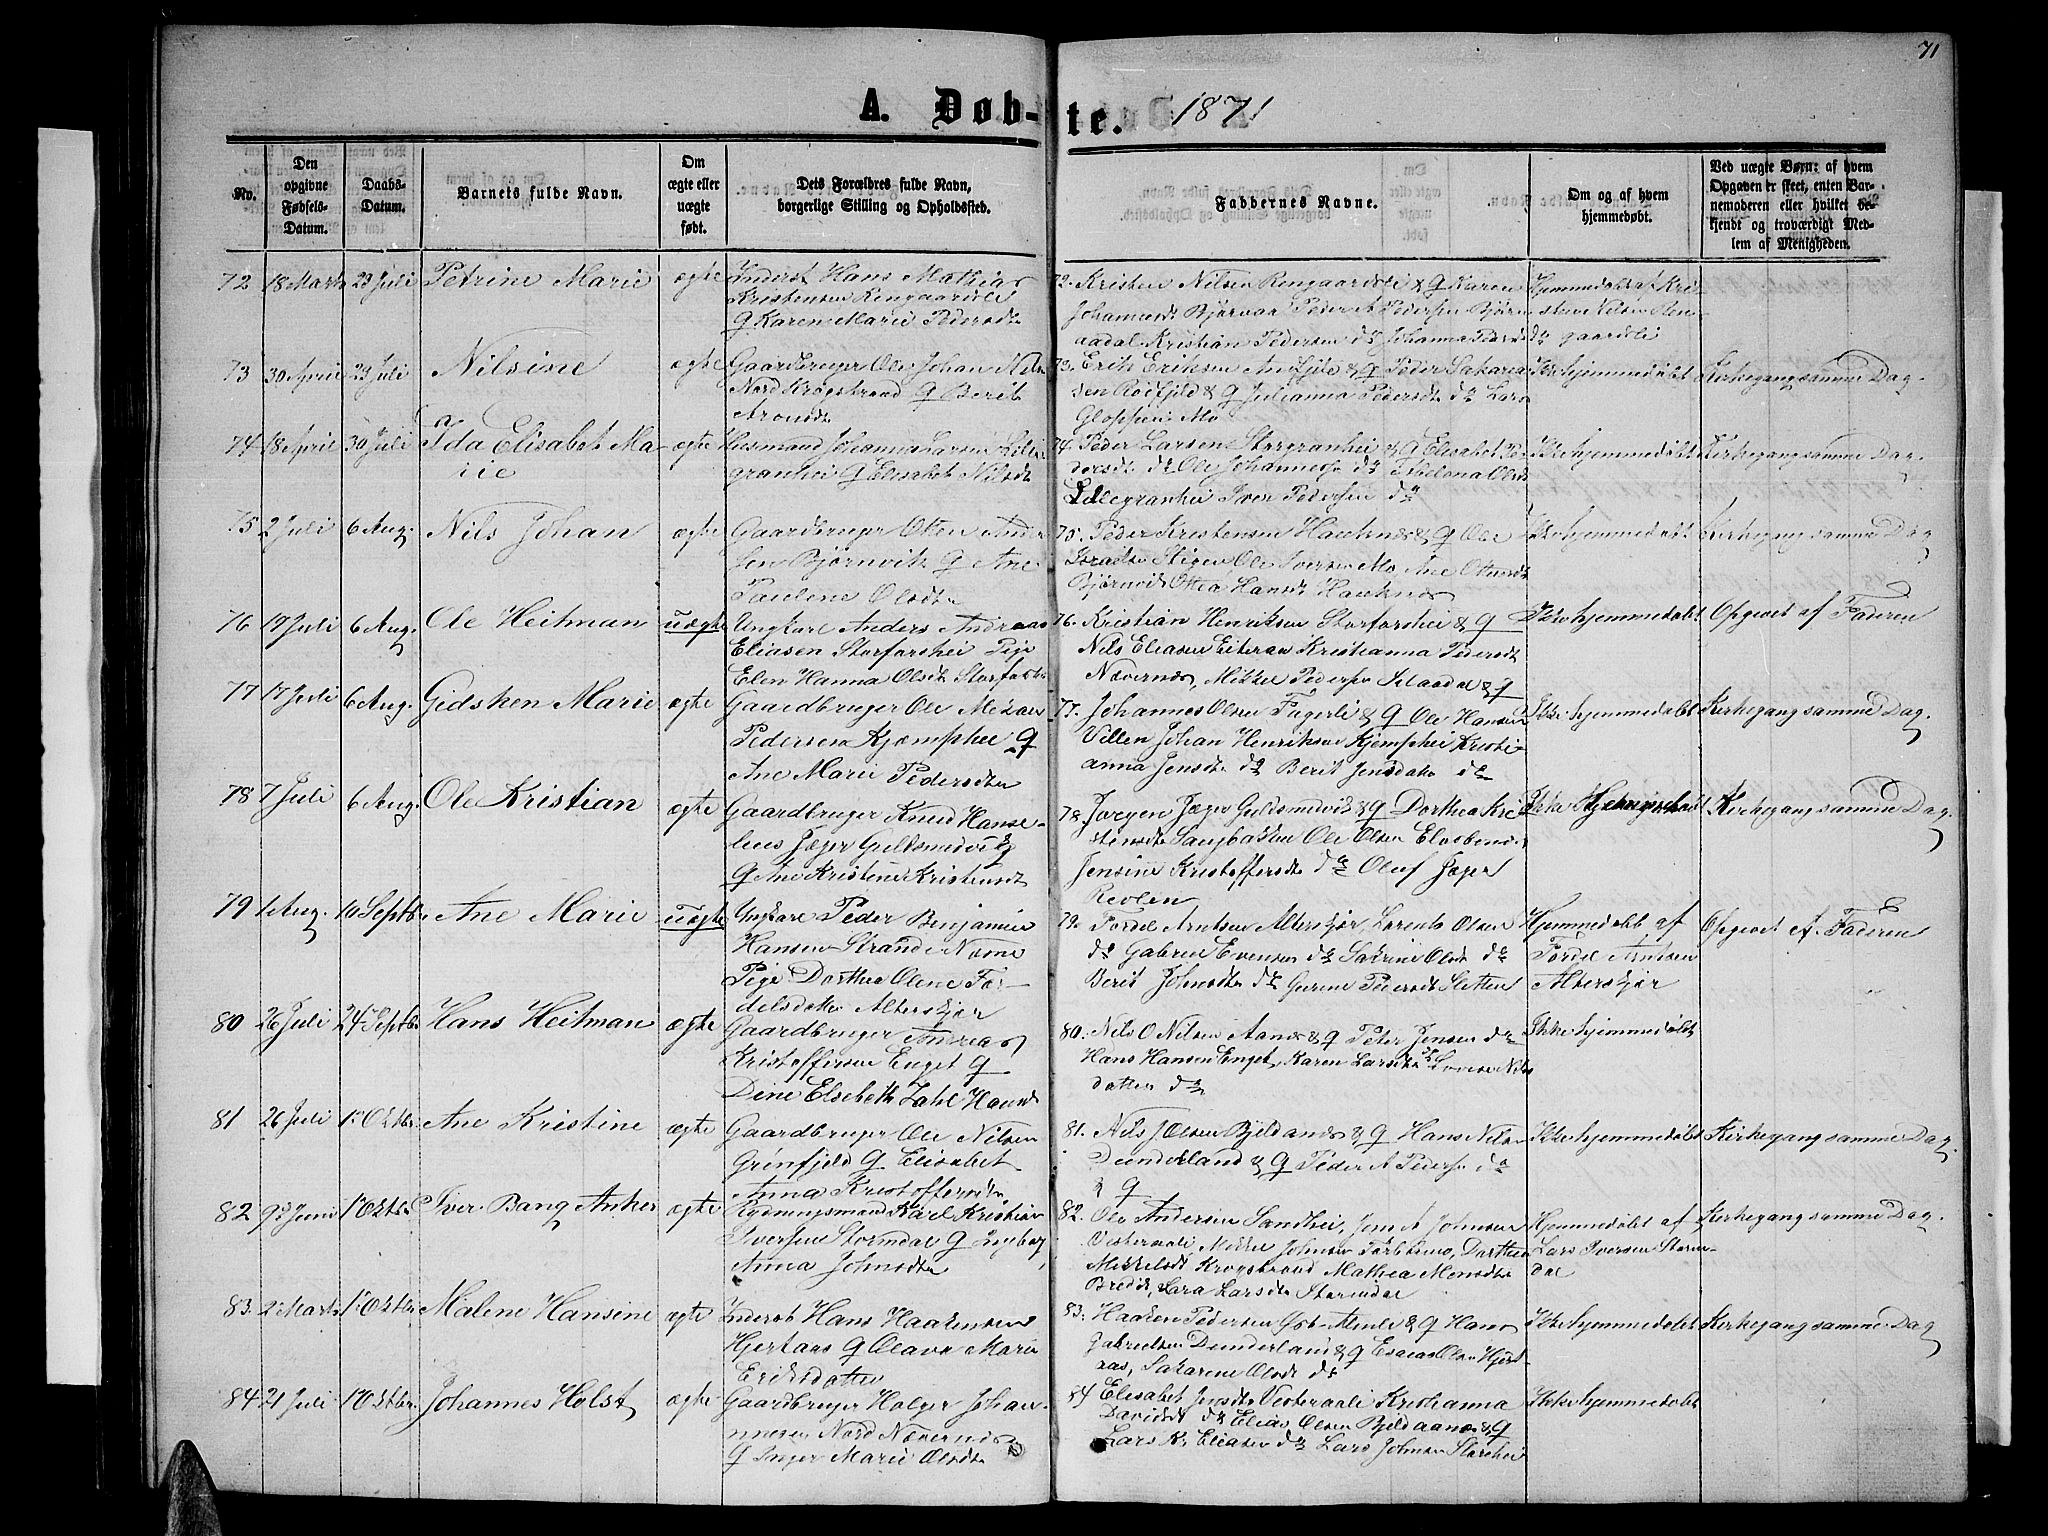 71
A. Døb-te. 1871
No.
Den opgivne Fødsels-Datum.
Daabs-Datum.
Barnets fulde Navn.
Om ægte eller uægte født.
Dets Forældres fulde Navn, borgerlige Stilling og Opholdssted.
Faddernes Navne.
Om og af hvem hjemmedøbt.
Ved uægte Børn: af hvem Opgaven er skeet, enten Barnemoderen eller hvilket bekjendt og troværdigt Medlem af Menigheden.
72 18 Marts 23 Juli Petrine Marie ægte Inderst Hans Mathias
Kristensen Rengaardsli
& Karen Marie Pedersdtr
72. Kristen Nilsen Rengaardsli & Q Karen
Johannesdt Bjørnaa Peder A Pedersen Bjørn-
aadal Kristian Pedersen do Johanna Pedersdt do
Hjemmedøbt af Kri-
sten Nilsen Ren-
gaardsli
73 30 April 23 Juli Nilsine ægte Gaardbruger Ole Johan Nils
Nord Krogstrand Q Berit
Aronsdt
73. Erik Eriksen Q Peder Sakaria-
sen Rødfjeld & Q Julianna Pedersdt do Lars
Gloppen Mo
Ikke hjemmedøbt Kirkegang samme Dag.
74 18 April 30 Juli Ida Elisabet Ma-
rie
ægte Husmand Johannes Larsen Lille
granhei Q Elisabet Nilsdt
74. Peder Larsen Storgranhei & Q Elisabet Pe-
dersdt do Ole Johannesen do Helena Olsdt
Lillegranhei Iver Pedersen do
Ikke hjemmedøbt Kirkegang samme Dag.
75 2 Juli 6 Aug. Nils Johan ægte Gaardbruger Otte Ander
sen Bjørnvik Q Ane
Pauline Olsdtr
75. Peder Kristensen Hauknes & Q Ole
Israelsen Stigen Ole Iversen Mo Ane Ottesdt
Bjørnvik Ottea Hansdt Hauknes
Ikke hjemmedøbt Kirkegang samme Dag
76 17 Juli 6 Aug. Ole Heitman uægte Ungkarl Anders Andreas
Eliasen Storforshei Pige
Elen Hanna Olsdt Storforsh
76. Kristian Henriksen Storforshei & Q
Nils Eliasen Eiteraa Kristianna Pedersdt
Nævernes, Mikkel Pedersen & Q
Ikke hjemmedøbt Opgivet af Faderen
77 17 Juli 6 Aug. Gidsken Marie ægte Gaardbruger Ole Mikael
Pedersen Kjæmphei Q
Ane Marie Pedersdtr
77. Johannes Olsen Fagerli & Q Ole Hansen
Villen Johan Henriksen Kjemphei Kristi-
anna Jensdt do Berit Jensdatr do
Ikke hjemmedøbt Kirkegang samme Dag.
78 7 Juli 6 Aug. Ole Kristian ægte Gaardbruger Knud Hanse-
lius Jæger Guldsmedvig
Q Ane Kristine Kristensdt
78. Jørgen Jæger Guldsmedvik & Q Dorthea Kri-
stensdt Langbakken Ole Olsen
Jensine Kristoffersdt do Oluf Jæger
Revlen
Ikke Hjemmedøbt Kirkegang samme Dag.
79 1 Aug. 10 Septb. Ane Marie uægte Ungkarl Peder Benjamin
Hansen Strand Næsne
Pige Dorthea Olene For-
delsdatter Alterskjær
79. Fordel Arntsen Alterskjær, Lorents Olsen
do Gabriel Evensen do Sakrine Olsdt do
Berit Johnsdtr do Gurine Pedersdt Sletten
Hjemmedøbt af
Fordel Arntsen
Alterskjær
Opgivet af Faderen
80 26 Juli 24 Septb. Hans Heitman ægte Gaardbruger Andreas
Kristoffersen Enget Q
Dine Elsebeth Zahl Hansdt
80. Nils O Nilsen Aanes & Q Peter Jensen do
Hans Hansen Enget, Karen Larsdtr do Lovise Nils
datter do
Ikke hjemmedøbt
81 26 Juli 1 Oktbr. Ane Kristine ægte Gaardbruger Ole Nilsen
Grønfjeld Q Elisabet
Anna Kristoffersdtr
81. Nils Olsen Bjeldaanes & Q Hans Nilsen
Dunderland & Q Peder A Pedersen do
& Q
Ikke hjemmedøbt Kirkegang samme Dag.
82 9 Juni 1 Oktbr. Iver Bang Anker ægte Rydningsmand Karl Kristian
Iversen Stormdal Q Ingeborg
Anna Johnsdtr
82. Ole Andersen Sandhei, Jens A Johnsen
Vesteraali Mikkel Johnsen Dorthea
Mikkelsdt Krogstrand Mathea Monsdtr
Bredik, Lara Larsdtr Stormdal
Hjemmedøbt af
Lars Iversen Storm-
dal
Kirkegang samme Dag.
83. 2 Marts 1 Oktbr. Malene Hansine ægte Inderst Hans Haakensen
Hjertaas Q Olava Marie
Eriksdatter
83. Haaken Pedersen & Q Hans
Gabrielsen Dunderland & Q Esaias Olsen Hjert-
aas, Sakarene Olsdt do
Ikke hjemmedøbt Kirkegang samme Dag
84 21 Juli 1 Oktbr. Johannes Holst ægte Gaardbruger Holger Johan-
nesen Nord Nævernes
Q Inger Marie Olsdtr
84 Elisabet Jensdtr Vesteraali Kristianna
Davidsdt do Elias Olsen Bjeldaanes & Q
Lars K. Eliasen do Lars Johnsen Storhei
Ikke hjemmedøbt